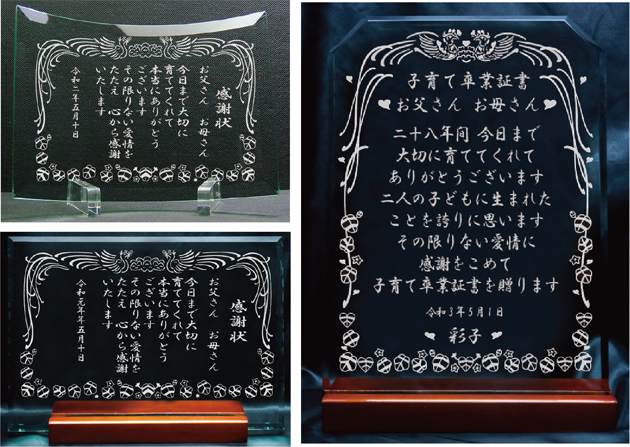 感謝状
お父さん　お母さん
今日まで大切に
育ててくれて
本当にありがとう
ございます
その限りない愛情を
たたえ　心から感謝
いたします
令和二年五月十日
感謝状
お父さん　お母さん
今日まで大切に
育ててくれて
本当にありがとう
ございます
その限りない愛情を
たたえ　心から感謝
いたします
令和元年五月十日
子育て卒業証書
お父さん　お母さん
二十八年间 今日まで
大切に育ててくれて
ありがとうございます
二人の子どもに生まれた
ことを誇りに思います
その限りない愛情に
感謝をこめて
子育て卒業証書を贈ります
令和3年5月1日
彩子